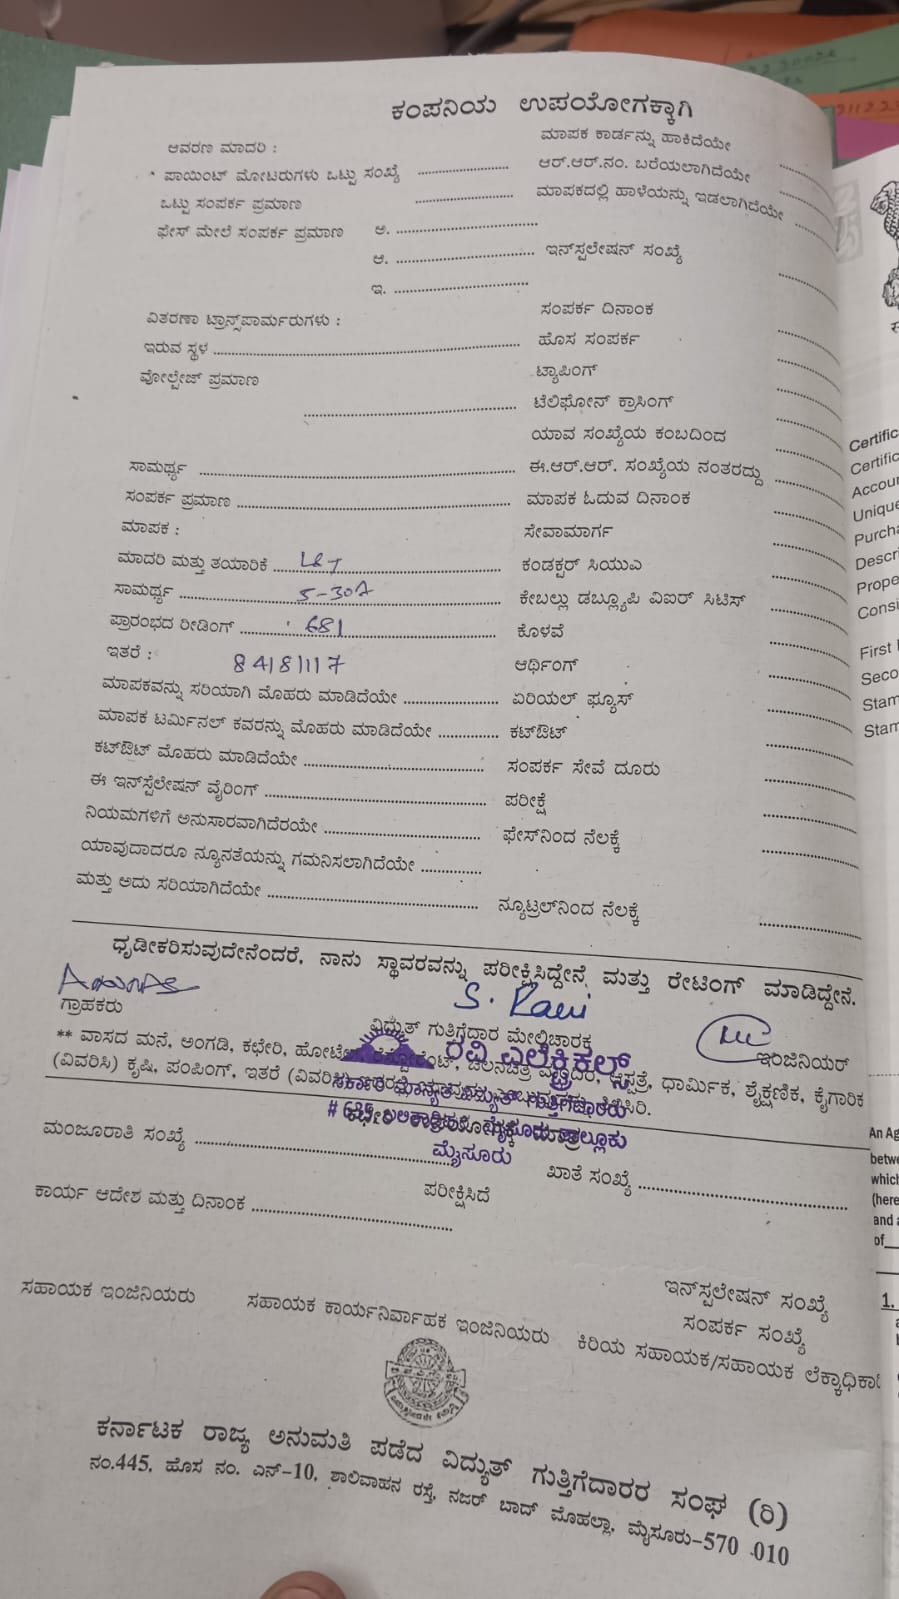 ಕಂಪನಿಯ ಉಪಯೋಗಕ್ಕಾಗಿ
ಆವರಣ ಮಾದರಿ :
ಮಾಪಕ ಕಾರ್ಡನ್ನು ಹಾಕಿದೆಯೇ
ಪಾಯಿಂಟ್ ಮೋಟರುಗಳು ಒಟ್ಟು ಸಂಖ್ಯೆ
ಆರ್.ಆರ್.ನಂ. ಬರೆಯಲಾಗಿದೆಯೇ
ಒಟ್ಟು ಸಂಪರ್ಕ ಪ್ರಮಾಣ
ಮಾಪಕದಲ್ಲಿ ಹಾಳೆಯನ್ನು ಇಡಲಾಗಿದೆಯೇ
ಫೇಸ್ ಮೇಲೆ ಸಂಪರ್ಕ ಪ್ರಮಾಣ ಅ.
ಆ. ಇನ್‌ಸ್ಪಲೇಷನ್ ಸಂಖ್ಯೆ
ಇ.
ವಿತರಣಾ ಟ್ರಾನ್ಸ್‌ಪಾರ್ಮರುಗಳು :
ಸಂಪರ್ಕ ದಿನಾಂಕ
ಇರುವ ಸ್ಥಳ
ಹೊಸ ಸಂಪರ್ಕ
ವೋಲ್ಟೇಜ್ ಪ್ರಮಾಣ
ಟ್ಯಾಪಿಂಗ್
ಟೆಲಿಫೋನ್ ಕ್ರಾಸಿಂಗ್
ಯಾವ ಸಂಖ್ಯೆಯ ಕಂಬದಿಂದ
ಸಾಮರ್ಥ್ಯ
ಈ.ಆರ್.ಆರ್. ಸಂಖ್ಯೆಯ ನಂತರದ್ದು
ಸಂಪರ್ಕ ಪ್ರಮಾಣ
ಮಾಪಕ ಓದುವ ದಿನಾಂಕ
ಮಾಪಕ :
ಸೇವಾಮಾರ್ಗ
ಮಾದರಿ ಮತ್ತು ತಯಾರಿಕೆ L&T
ಕಂಡಕ್ಟರ್ ಸಿಯುಎ
ಸಾಮರ್ಥ್ಯ 5-30A
ಕೇಬಲ್ಲು ಡಬ್ಲ್ಯೂಪಿ ವಿಐರ್ ಸಿಟಿಸ್
ಪ್ರಾರಂಭದ ರೀಡಿಂಗ್ 681
ಕೊಳವೆ
ಇತರೆ : 84181117
ಆರ್ಥಿಂಗ್
ಮಾಪಕವನ್ನು ಸರಿಯಾಗಿ ಮೊಹರು ಮಾಡಿದೆಯೇ
ಏರಿಯಲ್ ಫ್ಯೂಸ್
ಮಾಪಕ ಟರ್ಮಿನಲ್ ಕವರನ್ನು ಮೊಹರು ಮಾಡಿದೆಯೇ
ಕಟ್‌ಔಟ್
ಕಟ್‌ಔಟ್ ಮೊಹರು ಮಾಡಿದೆಯೇ
ಸಂಪರ್ಕ ಸೇವೆ ದೂರು
ಈ ಇನ್‌ಸ್ಪೆಲೇಷನ್ ವೈರಿಂಗ್
ಪರೀಕ್ಷೆ
ನಿಯಮಗಳಿಗೆ ಅನುಸಾರವಾಗಿದೆರಯೇ
ಫೇಸ್‌ನಿಂದ ನೆಲಕ್ಕೆ
ಯಾವುದಾದರೂ ನ್ಯೂನತೆಯನ್ನು ಗಮನಿಸಲಾಗಿದೆಯೇ
ಮತ್ತು ಅದು ಸರಿಯಾಗಿದೆಯೇ
ನ್ಯೂಟ್ರಲ್‌ನಿಂದ ನೆಲಕ್ಕೆ
ಧೃಡೀಕರಿಸುವುದೇನೆಂದರೆ, ನಾನು ಸ್ಥಾವರವನ್ನು ಪರೀಕ್ಷಿಸಿದ್ದೇನೆ ಮತ್ತು ರೇಟಿಂಗ್ ಮಾಡಿದ್ದೇನೆ.
S. Ravi
ಗ್ರಾಹಕರು
ವಿದ್ಯುತ್ ಗುತ್ತಿಗೆದಾರ ಮೇಲ್ವಿಚಾರಕ
ಇಂಜಿನಿಯರ್
ರವಿ ಎಲೆಕ್ಟ್ರಿಕಲ್ಸ್
** ವಾಸದ ಮನೆ, ಅಂಗಡಿ, ಕಛೇರಿ, ಆಸ್ಪತ್ರೆ, ಧಾರ್ಮಿಕ, ಶೈಕ್ಷಣಿಕ, ಕೈಗಾರಿಕ
(ವಿವರಿಸಿ) ಕೃಷಿ, ಪಂಪಿಂಗ್, ಇತರೆ
ವಿದ್ಯುತ್ ಗುತ್ತಿಗೆದಾರರು
ಮೈಸೂರು
ಮಂಜೂರಾತಿ ಸಂಖ್ಯೆ
ಖಾತೆ ಸಂಖ್ಯೆ
ಕಾರ್ಯ ಆದೇಶ ಮತ್ತು ದಿನಾಂಕ
ಪರೀಕ್ಷಿಸಿದೆ
ಇನ್‌ಸ್ಪಲೇಷನ್ ಸಂಖ್ಯೆ
ಸಂಪರ್ಕ ಸಂಖ್ಯೆ
ಸಹಾಯಕ ಇಂಜಿನಿಯರು
ಸಹಾಯಕ ಕಾರ್ಯನಿರ್ವಾಹಕ ಇಂಜಿನಿಯರು
ಕಿರಿಯ ಸಹಾಯಕ/ಸಹಾಯಕ
ಕರ್ನಾಟಕ ರಾಜ್ಯ ಅನುಮತಿ ಪಡೆದ ವಿದ್ಯುತ್ ಗುತ್ತಿಗೆದಾರರ ಸಂಘ (ರಿ)
ನಂ.445, ಹೊಸ ನಂ. ಎನ್-10, ಶಾಲಿವಾಹನ ರಸ್ತೆ, ನಜರ್ ಬಾದ್ ಮೊಹಲ್ಲಾ, ಮೈಸೂರು-570 010